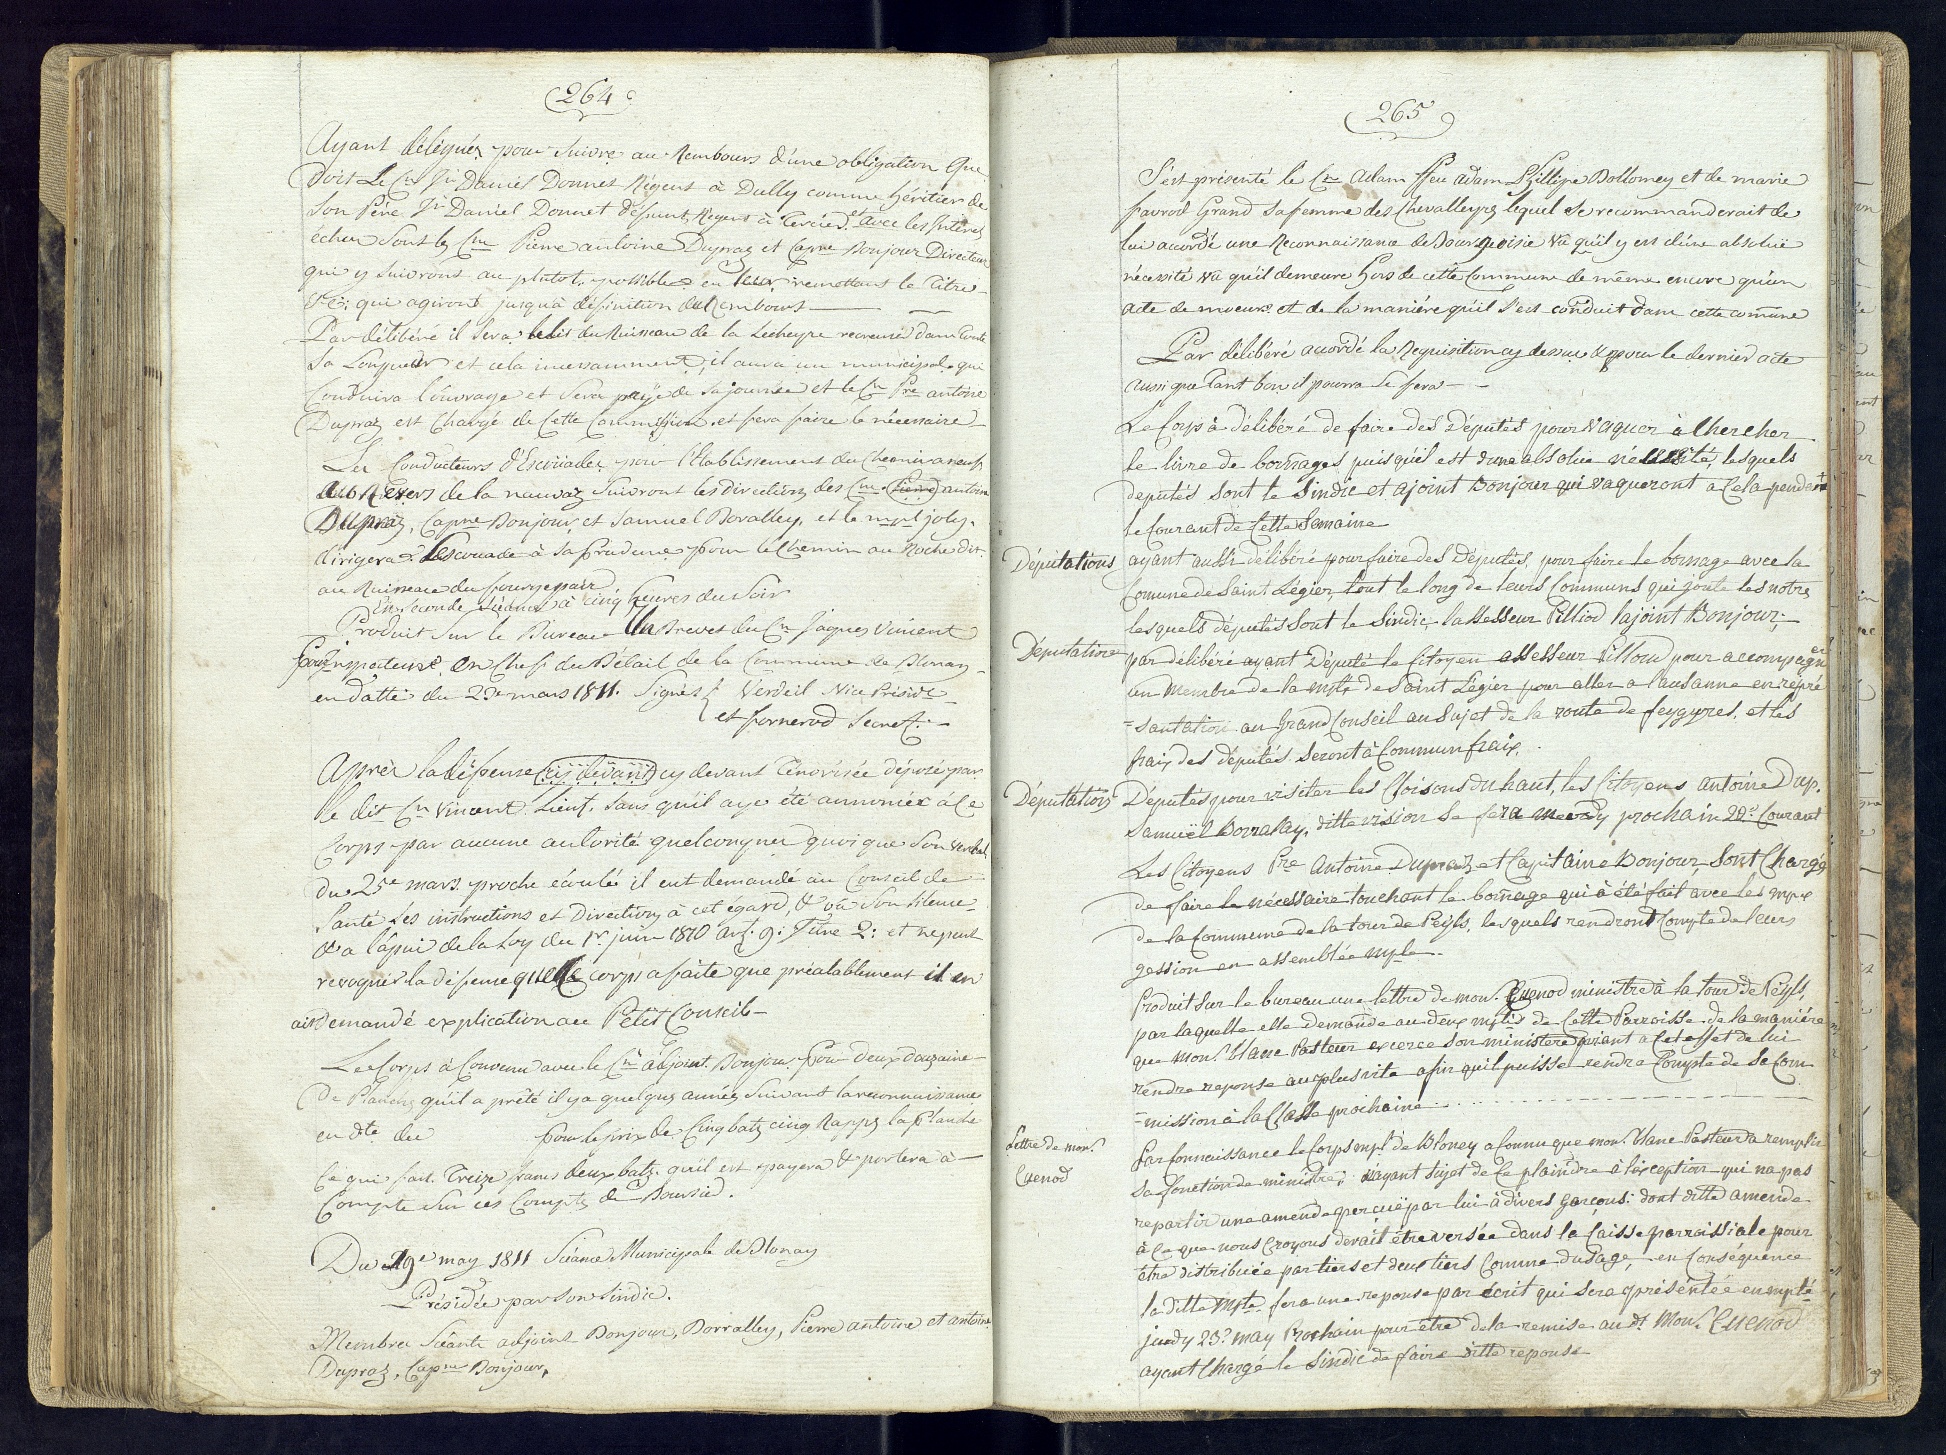 264
Ayant délégués pour suivre au Rembours d'une obligation que
doit Le Cn Jn Daniel Donnet Régent à Dully comme héritier de
son Père Jn Daniel Donnet défunt, Régent à et avec les Intérets
écheu sont les Cms Pierre antoine Dupraz et Capne Bonjour Directeur
qui y suivront au plutot possible en leur remettant le Titre
& qui agiront jusqu'a définition du Rembours
Par délibéré il sera le lit du Ruisseau de la Lecheyre recreusé dans toute
sa Longueur et cela incessamment, il aura un municipal qui
Conduira l'ouvrage et sera payé de sa journée et le Cn Pre antoine
Dupraz est Chargé de Cette Commission et fera faire le nécessaire
Les Conducteurs d'Escouades pour l'Etablissement du Chemin
de la suivront les directions des Cms Pierre antoine
Dupraz, Capne Bonjour, et Samuel Bovalley, et le mpl joly
dirigera l'Escouade à sa prudence pour le Chemin au Roche dit
au Ruisseau du
En seconde Séance à cinq heures du Soir
Produit sur le Bureau Un Brevet du Cn Jaques Vincent
pour Inspecteur en Chef du Bétail de la Commune de Blonay
en datte du 23e mars 1811. Signés Verdeil Vice Préside
et fornerod Secret.
Après la défense cy devant cy devant Ténorisée déposé par
le dit Cn Vincent Lieut. sans qu'il aye été annoncée à Ce
Corps par aucune autorité quelconques quoique son verbal
du 25e mars proche écoulé il eut demandé au Conseil de
Santé des instructions et directions à cet égard, & vu son silence
& a l'apui de la Loy du 1r juin 1810 art. 9: Titre 2: et ne peut
revoquer la défense que le corps a faite que préalablement il en
ait demandé explication au Petit Conseil
Le Corps à Convenu avec le Cn adjoint Bonjour pour deux douzaine
De Planches qu'il a prêté il y a quelques années suivant la reconnaissance
en dte du pour le prix de Cinq batz cinq Rapps la Planche
Ce qui fait Treize francs deux batz qu'il est payera & portera à
Compte sur ces Comptes de Boursier.
Du 19e may 1811 Séance Municipale de Blonay
Présidée par son Sindic.
Membres Séants adjoint Bonjour, Borralley, Pierre antoine et antoine
Dupraz, Capne Bonjour,
265
S'est présenté le Cn Adam ffeu Adam Phillipe Dollomey et de marie
favrod Grand sa femme des Chevalleyres lequel se recommanderait de
lui accordé une Reconnaissance de Bourgeoisie Vu qu'il y est d'une absolue
nécessité vu qu'il demeure hors de cette Commune de même encore qu'un
acte de moeurs et de la maniére qu'il s'est conduit dans cette comune
Par délibéré accordé la Requisition cy dessus & pour le dernier acte
aussi que tant bon il pourra se fera
Le Corps à délibéré de faire des Députés pour Vaquer à Chercher
le livre de bornages puisqu'il est d'une absolue nécessité, lesquels
deputés sont le Sindic et ajoint Bonjour qui vaqueront a Cela pendant
le Courant de Cette Semaine
Députations
ayant aussi délibéré pour faire des Députés, pour faire le bornage avec la
Comune de Saint Légier, tout le long de leurs Communs qui joute les notres
lesquels députés sont le Sindic, l'assesseur Pilliod l'ajoint Bonjour;
Députation
par délibéré ayant Député le Citoyen assesseur Pilliod pour accompagner
un membre de la mpte de Saint Legier pour aller a Lausanne en répré
=santation au Grand Conseil au sujet de la route de feygyres, et les
frais des députés seront à Commun frais.
Députations
Députés pour visiter les Cloisons du haut, les Citoyens Antoine Dup.
Samuël Borralay, ditte vision se fera mecredy prochain 22e Courant
Les Citoyens Pre Antoine Dupraz et Capitaine Bonjour, sont Chargés
de faire le nécessaire touchant le bornage qui à été fait avec les mpx
de la Commune de la tour de Peyls, lesquels rendront Compte de leurs
gession en assemblée mple.
Produit sur le bureau une lettre de mon.r Cuenod ministre à la tour de Peyls,
par laquelle elle demande au deux mptés de Cette Parroisse de la maniére
que Mon.r Pasteur exerce son ministére quant a Cet effet de lui
rendre reponse au plus vite afin qu'il puisse rendre Compte de Sa Com
=mission à la Classe prochaine
Lettre de mon.r
Cuenod
Par Connaissance le Corps mpl de Bloney a Connu que mon.r Pasteur a remplir
sa fonction de ministre, n'ayant sujet de Ce plaindre à l'exception qui na pas
repartir une amende percue par lui à divers garçons: dont ditte amende
à Ce que nous Croyons devait être versée dans la Caisse parroissiale pour
être distribuée par tiers et deux tiers Comme dusage, en Conséquence
la ditte mpte fera une reponse par écrit qui sera présentée en mpté
jeudy 23e may Prochain pour être de la remise au dt Mon.r Cuenod
ayant Chargé le Sindic de faire ditte reponse